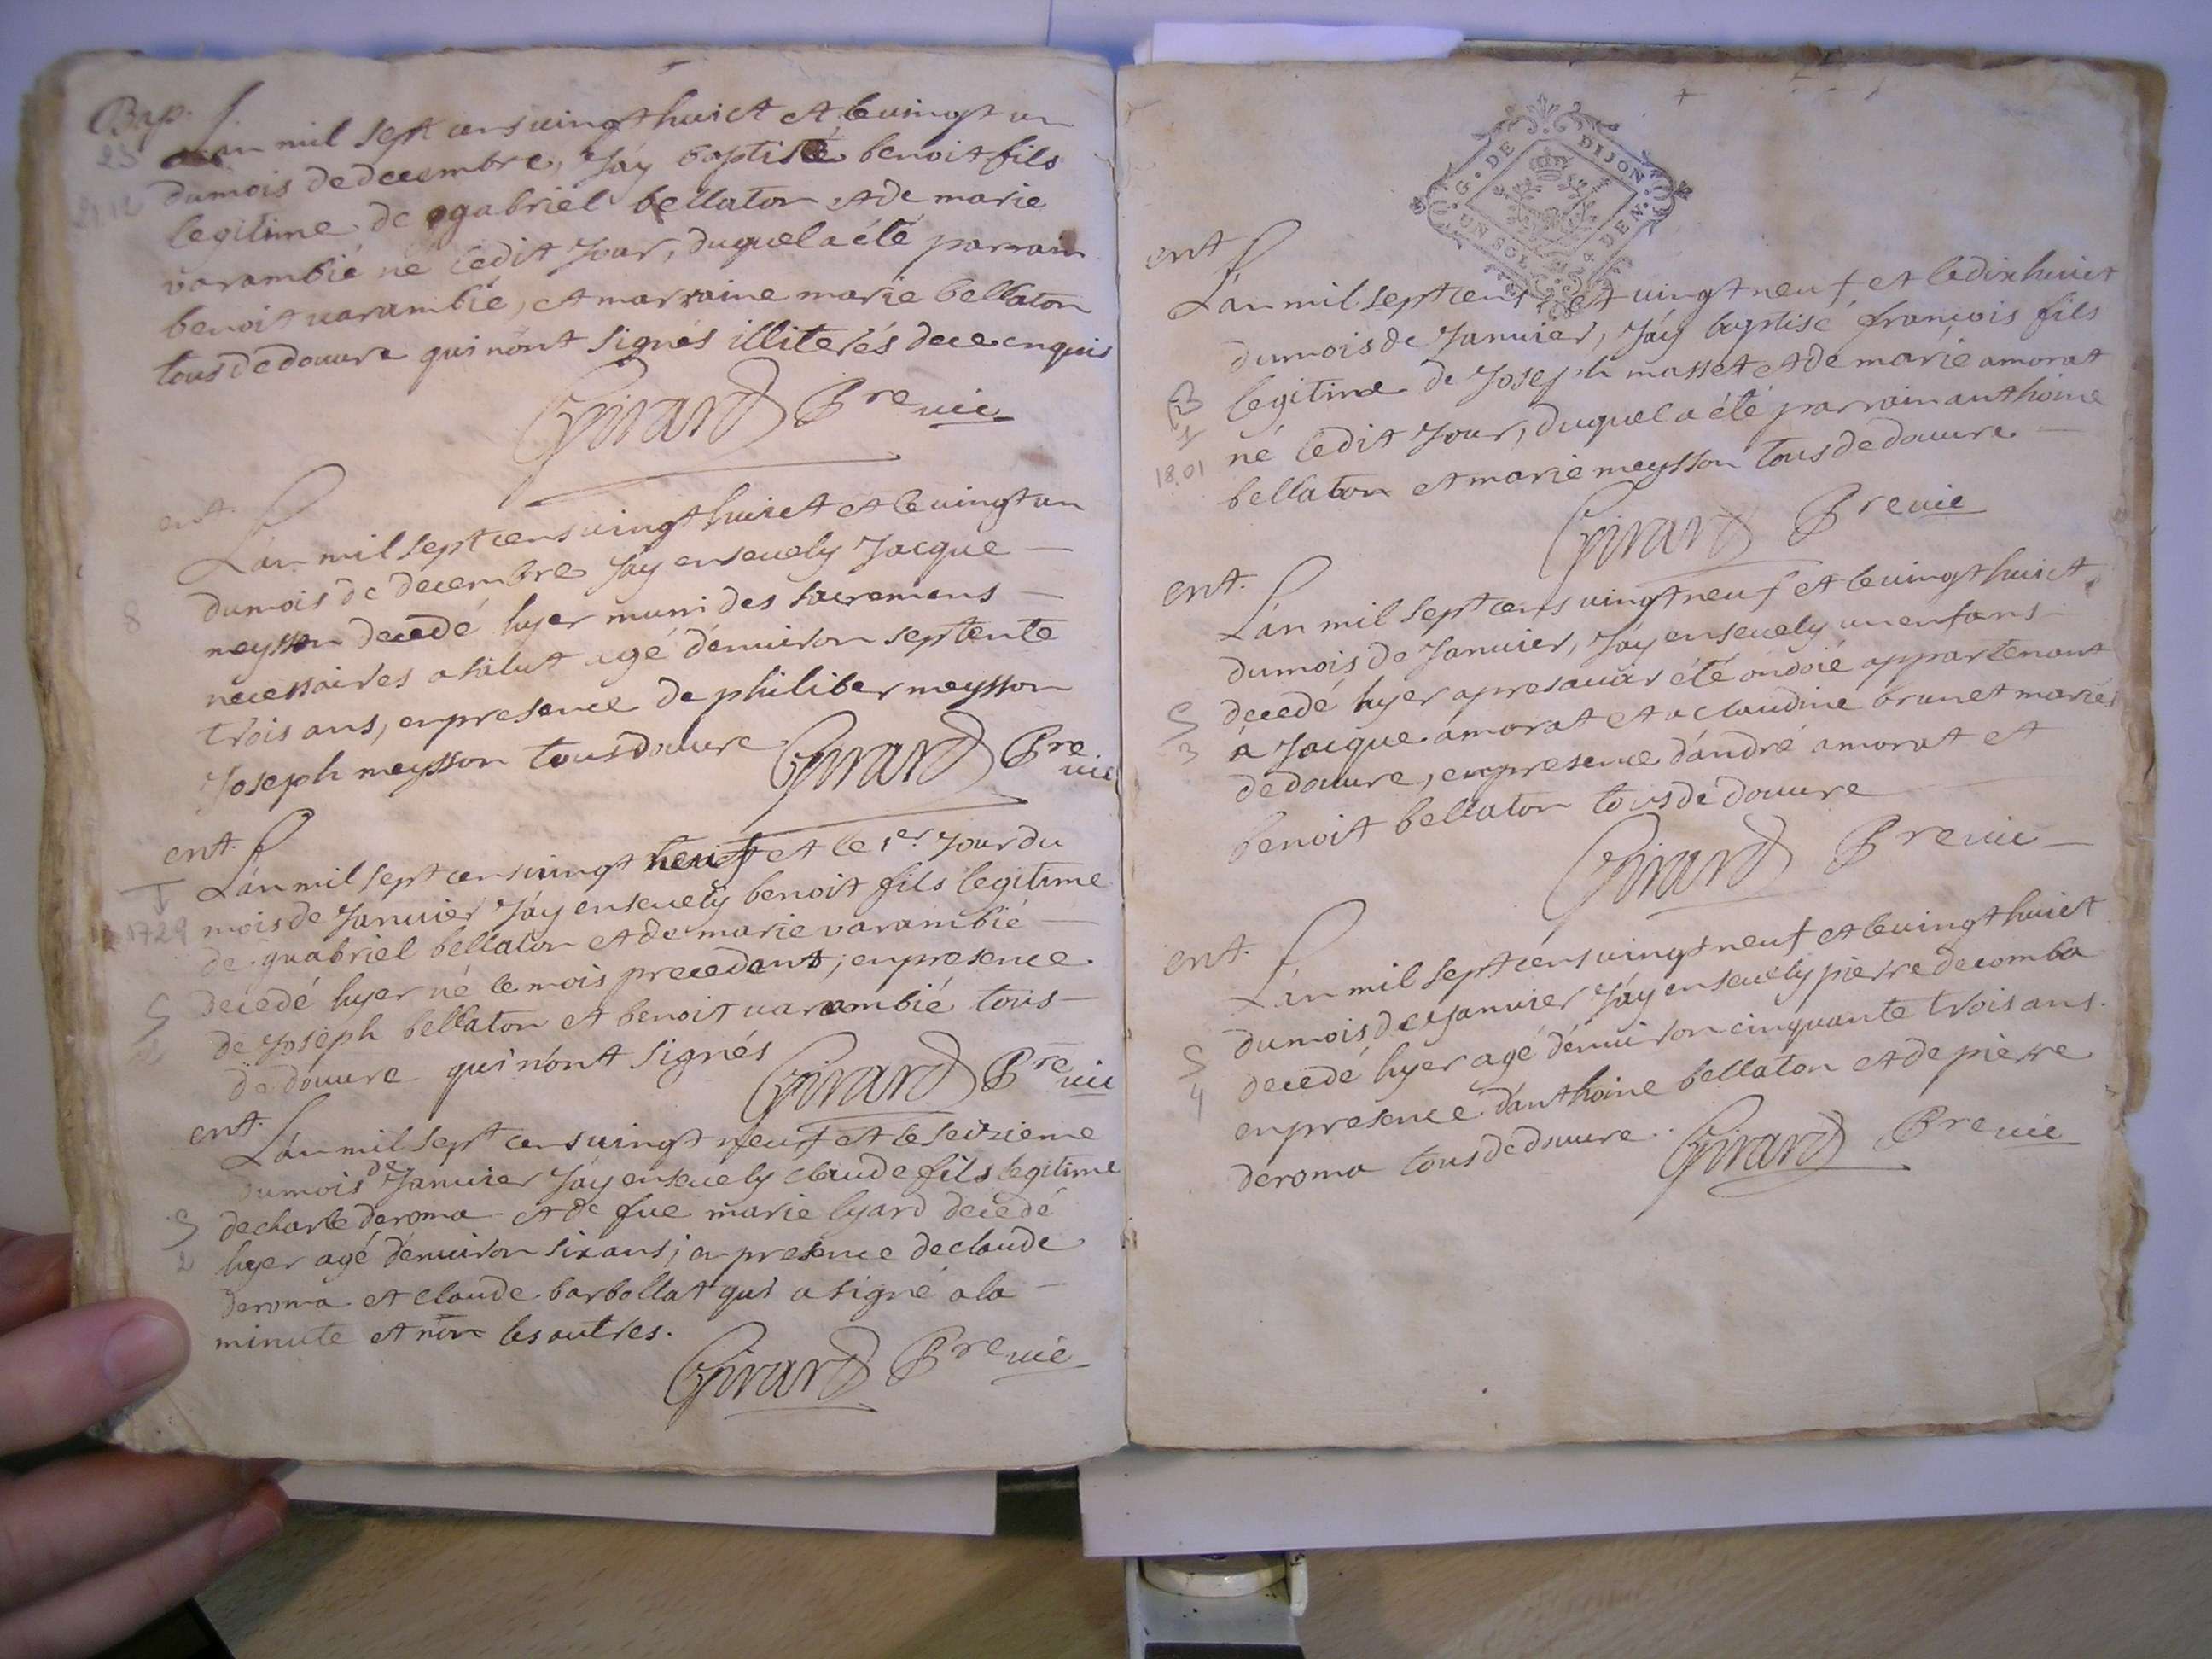 Bap.
23
L'an mil sept cens vingt huict et le vingt un
21.12
du mois de decembre, J'ay baptisé benoit fils
legitime de gabriel bellaton et de marie
varambié né ledit Jour, duquel a été parrain
benoit varambié, et marraine marie bellaton
tous de douvre qui n'ont signés illiterés de ce enquis
Girard Pre vic
ent.
L'an mil sept cens vingt huict et le vingt un
du mois de decembre J'ay ensevely Jacque
8
meysson decedé hyer muni des sacremens
necessaires a salut agé d'environ septente
trois ans, en presence de philiber meysson
Joseph meysson tous douvre
Girard Pre vic
ent.
L'an mil sept cens vingt neuf et le 1er Jour du
1729
mois de Janvier J'ay ensevely benoit fils legitime
de guabriel bellaton et de marie varambié
decedé hyer né le mois precedant; en presence
S
de Joseph bellaton et benoit varambié tous
de douvre qui n'ont signés
Girard Pre vic
ent.
L'an mil sept cens vingt neuf et le seizieme
du mois de Janvier J'ay ensevely claude fils legitime
S
de charle deroma et de fue marie lyard decedé
2
hyer agé d'environ six ans; en presence de claude
deroma et claude barbollat qui a signé a la
minute et non les autres.
Girard Pre vic
G. DE DIJON
UN SOL 4 DEN.
ent
L'an mil sept cens et vingt neuf et le dix huict
du mois de Janvier, J'ay baptisé françois fils
B
legitime de Joseph masset et de marie amorat
1
né ledit Jour, duquel a été parrain anthoine
18.01
bellaton et marie meysson tous de douvre
Girard Pre vic
ent.
L'an mil sept cens vingt neuf et le vingt huict
du mois de Janvier, J'ay ensevely un enfans
decedé hyer apres avoir été ondoié appartenant
S
à Jacque amorat et a claudine brunet mariés
3
de douvre, en presence d'andré amorat et
benoit bellaton tous de douvre
Girard Pre vic
ent.
L'an mil sept cens vingt neuf et le vingt huict
du mois de Janvier J'ay ensevely pierre decomba
S
decedé hyer agé d'environ cinquante trois ans.
4
en presence d'anthoine bellaton et de pierre
deroma tous de douvre.
Girard Pre vic